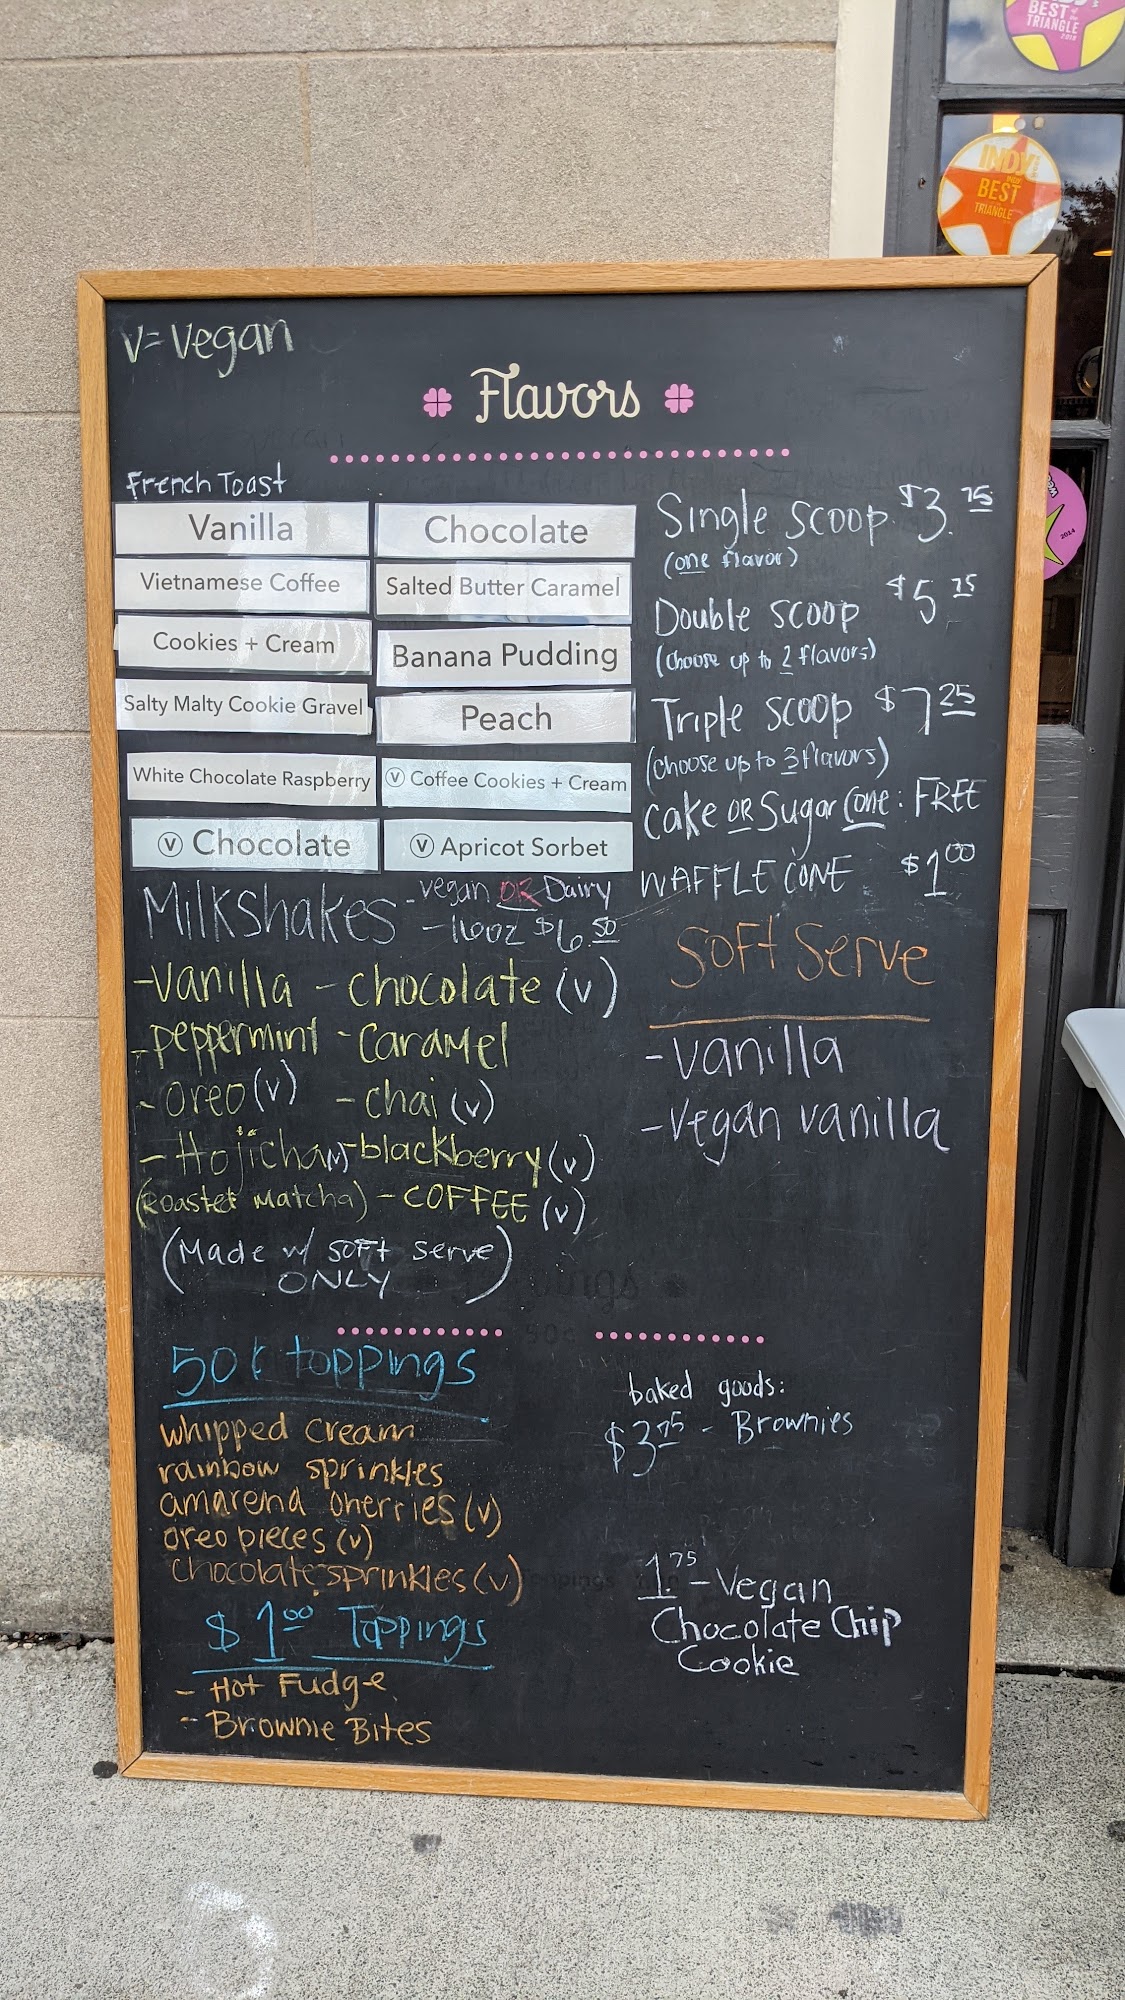 BEST of the
TRIANGLE
2018
INDY
BEST
TRIANGLE
2014
V=Vegan
Flavors
French Toast
Vanilla
Chocolate
Vietnamese Coffee
Salted Butter Caramel
Cookies + Cream
Banana Pudding
Salty Malty Cookie Gravel
Peach
White Chocolate Raspberry
Ⓥ Coffee Cookies + Cream
Ⓥ Chocolate
Ⓥ Apricot Sorbet
Single scoop $3.75
(one flavor)
Double scoop $5.75
(choose up to 2 flavors)
Triple scoop $7.25
(choose up to 3 flavors)
Cake OR Sugar Cone: FREE
WAFFLE CONE $1.00
Milkshakes - vegan OR Dairy
- 16oz $6.50
- Vanilla - chocolate (v)
- peppermint - Caramel
- oreo (v) - chai (v)
- Hojicha (v) - blackberry (v)
(Roasted Matcha) - COFFEE (v)
(Made w/ soft serve
ONLY)
Soft Serve
- vanilla
- vegan vanilla
50¢ toppings
whipped cream
rainbow sprinkles
amarena cherries (v)
oreo pieces (v)
chocolate sprinkles (v)
$1.00 Toppings
- Hot Fudge
- Brownie Bites
baked goods:
$3.75 - Brownies
1.75 - Vegan
Chocolate Chip
Cookie